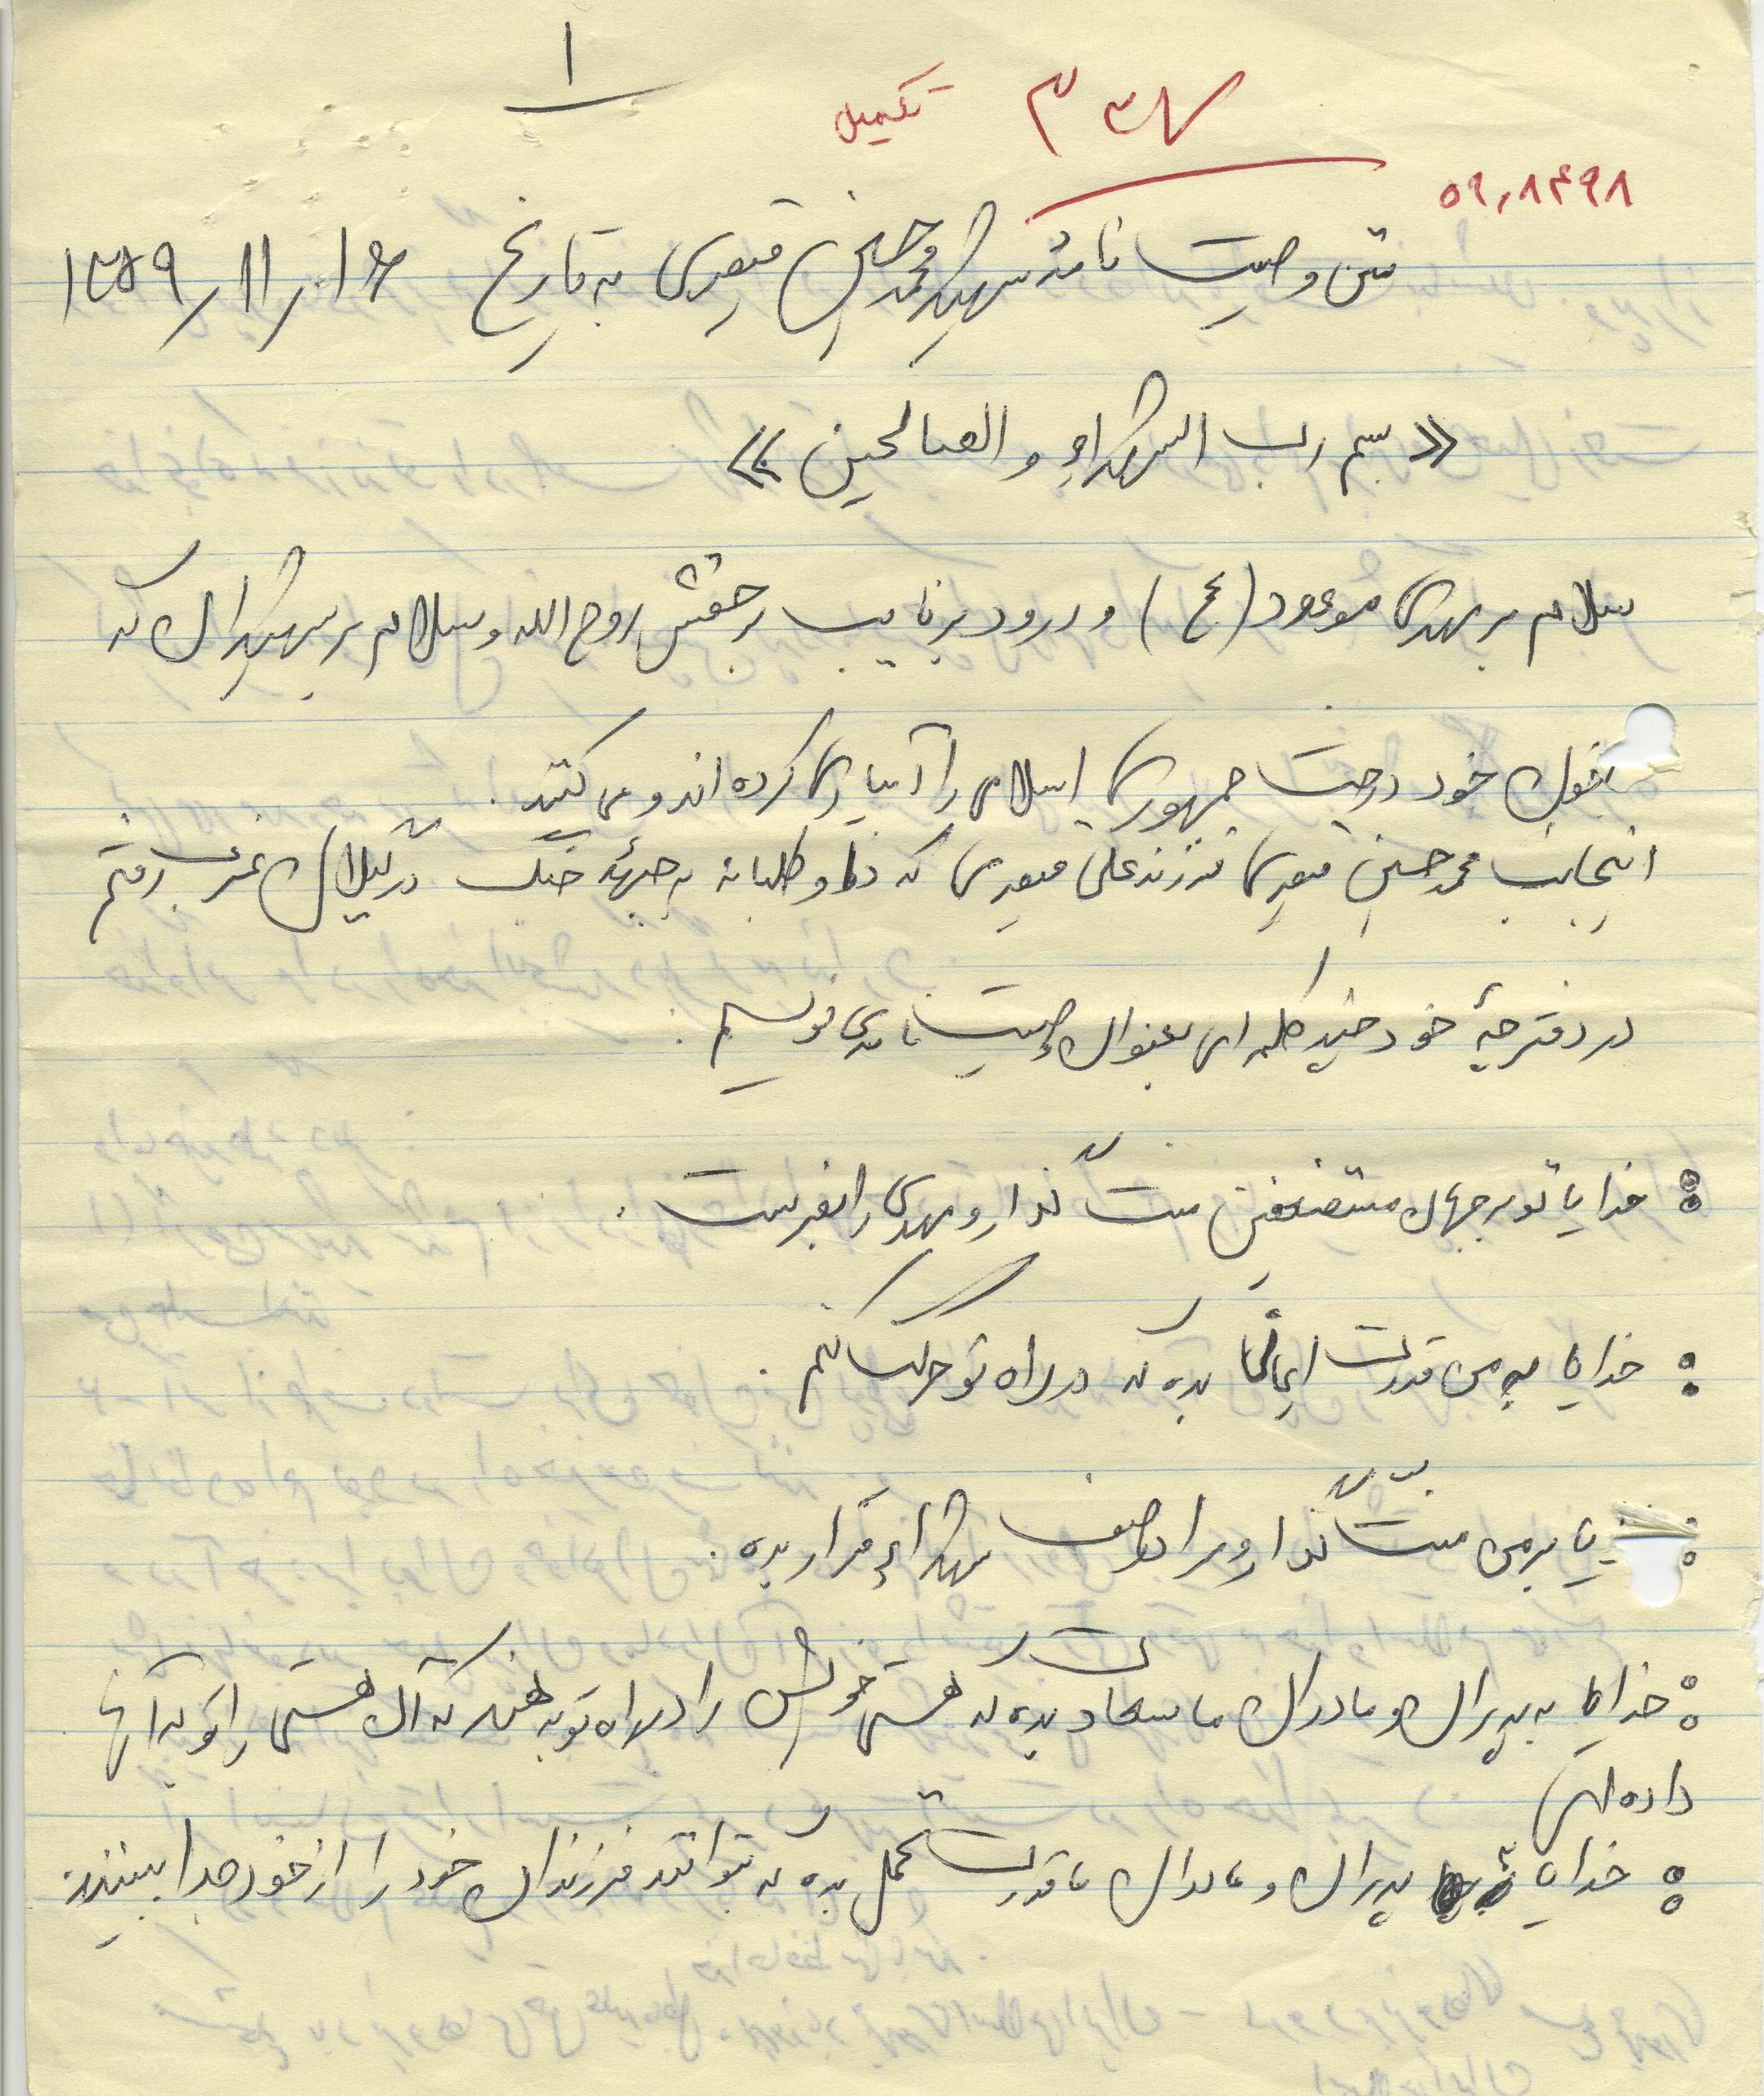 ۱
تکمیل
۵۹٫۸۴۹۸
متن وصیت نامهٔ شهید محمدحسین قیصری به تاریخ ۱۳۵۹/۱۱/۱۶
«بسم رب الشهداء و الصالحین»
سلام بر مهدی موعود (عج) و درود بر نایب برحقش روح الله و سلام بر شهیدان که
باخون خود درخت جمهوری اسلامی را آبیاری کرده اند و می کنند.
اینجانب محمدحسین قیصری فرزند علی قیصری که داوطلبانه به جبههٔ جنگ در گیلان غرب رفتم
در دفترچهٔ خود چند کلمه ای بعنوان وصیت نامه می نویسم:
: خدایا تو بر جهان مستضعفین منت گذار و مهدی را بفرست.
: خدایا به من قدرت ایمانی بده که در راه تو حرکت کنم.
: یا بر من منت گذار و مرا در صف شهداء قرار بده.
: خدایا به پدران و مادران ما سخاوت بده که هستی خویش را در راه تو بدهند که آن هستی را تو به آنها
داده ای
: خدایا به پدران و مادران ما قدرت تحمل بده که بتوانند فرزندان خود را از خود جدا ببینند